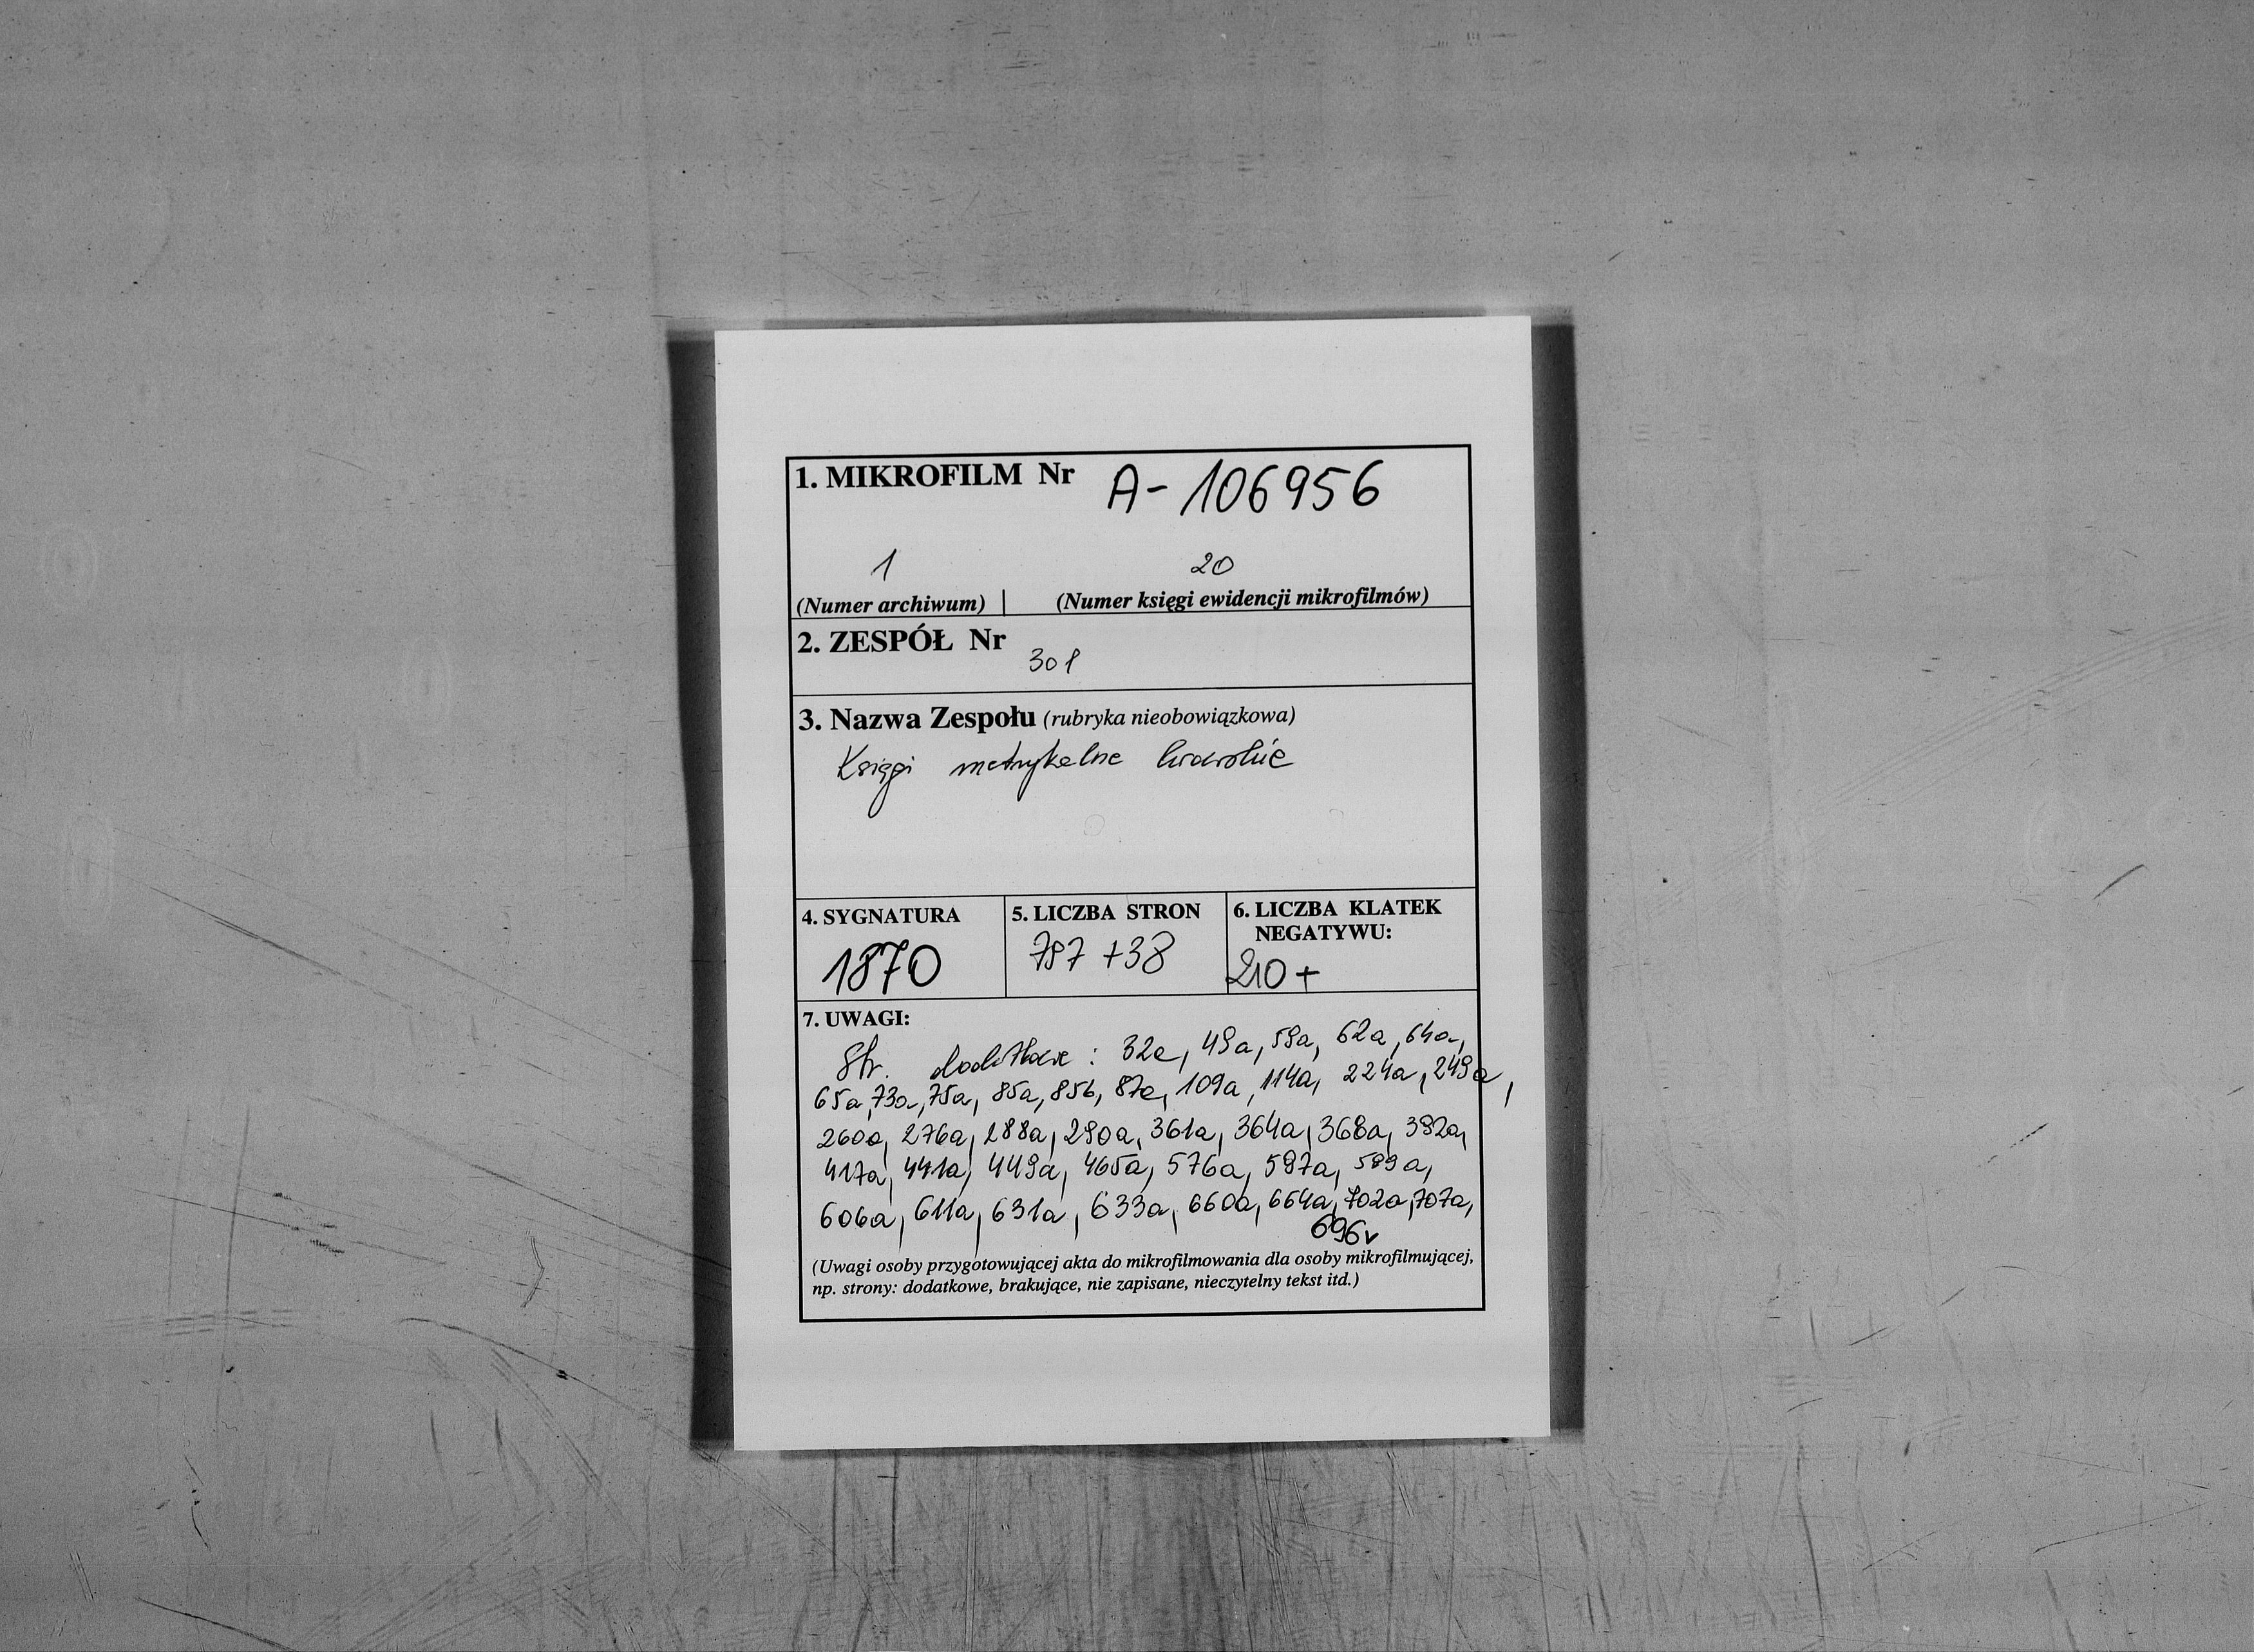 1. MIKROFILM Nr A-106956
1 20
(Numer archiwum) | (Numer księgi ewidencji mikrofilmów)
2. ZESPÓŁ Nr
301
3. Nazwa Zespołu (rubryka nieobowiązkowa)
Księgi metrykalne lwowskie
4. SYGNATURA
1870
5. LICZBA STRON
787 +38
6. LICZBA KLATEK
NEGATYWU:
210+
7. UWAGI:
Str. dodatkowe : 32a, 49a, 59a, 62a, 64a,
65a, 73a, 75a, 85a, 85b, 87a, 109a, 114a, 224a, 249a,
260a, 276a, 288a, 290a, 361a, 364a, 368a, 392a,
417a, 441a, 449a, 465a, 576a, 597a, 599a,
606a, 611a, 631a, 633a, 660a, 664a, 702a, 707a,
696v
(Uwagi osoby przygotowującej akta do mikrofilmowania dla osoby mikrofilmującej,
np. strony: dodatkowe, brakujące, nie zapisane, nieczytelny tekst itd.)